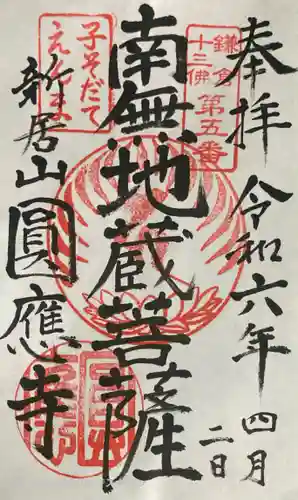 奉拝
令和六年
四月
二日
鎌倉
十三佛
第五番
南無地蔵菩薩
子そだて
えんま
新居山
圓應寺